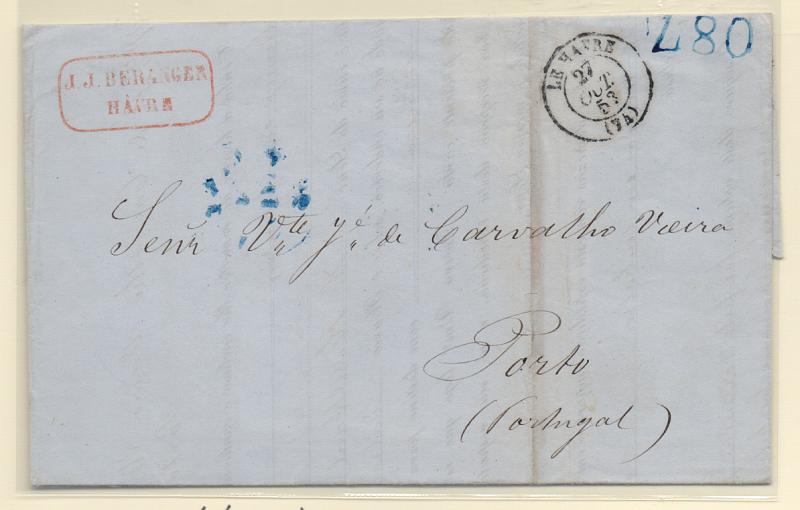 J. J. BÉRANGER
HÂVRE
LE HAVRE
27
OCT.
53
(74)
280
Senr Vte Jé de Carvalho Vieira
Porto
(Portugal)